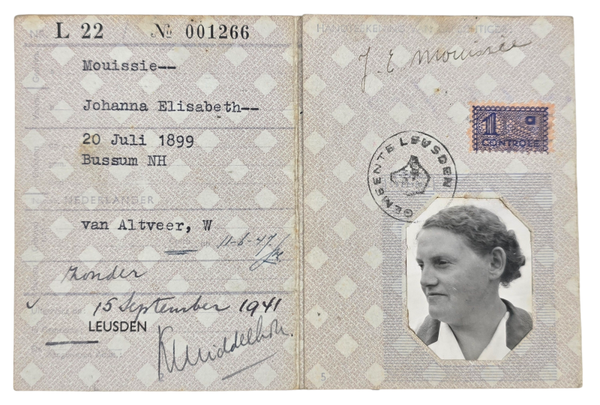 L 22 № 001266
Mouissie--
Johanna Elisabeth--
20 Juli 1899
Bussum NH
NEDERLANDER
van Altveer, W
11-6-47
Zonder
15 September 1941
LEUSDEN
J. E. Mouissie
1
CONTROLE
GEMEENTE LEUSDEN
5